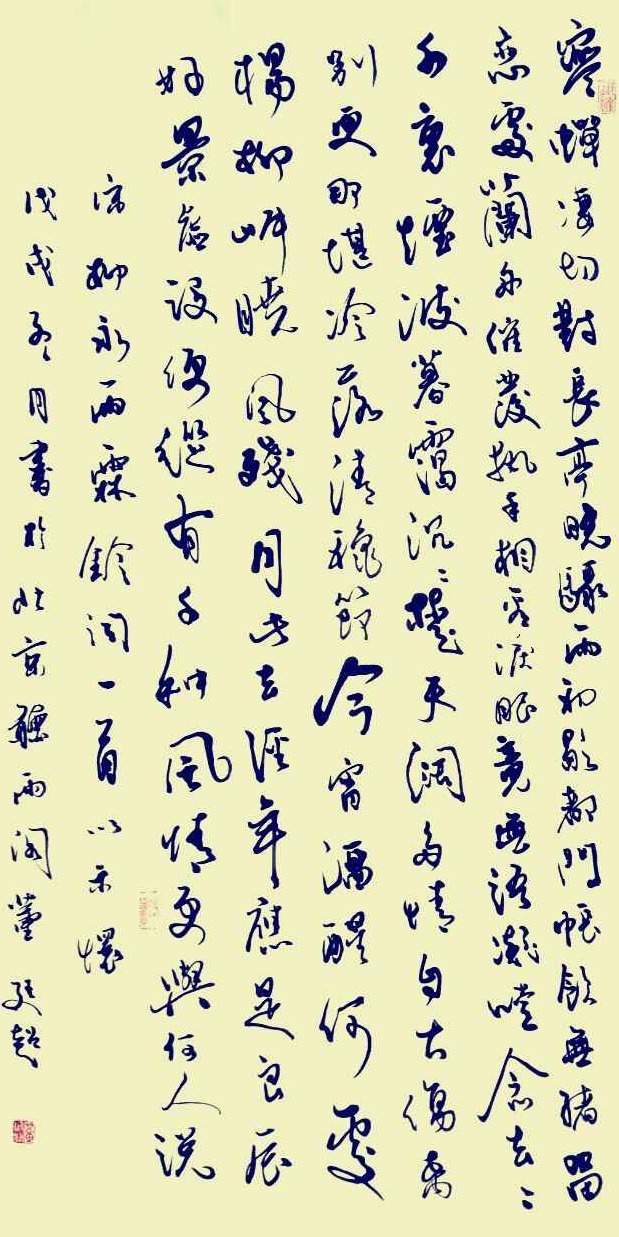 寒蟬凄切對長亭晚驟雨初歇都門帳飲無緒留
戀處蘭舟催發執手相看淚眼竟無語凝噎念去〻
千里煙波暮靄沉〻楚天闊多情自古傷離
別更那堪冷落清秋節今宵酒醒何處
楊柳岸曉風殘月此去經年應是良辰
好景虛設便縱有千種風情更與何人說
宋柳永雨霖鈴詞一首以示懷
戊戌冬月書於北京聽雨閣